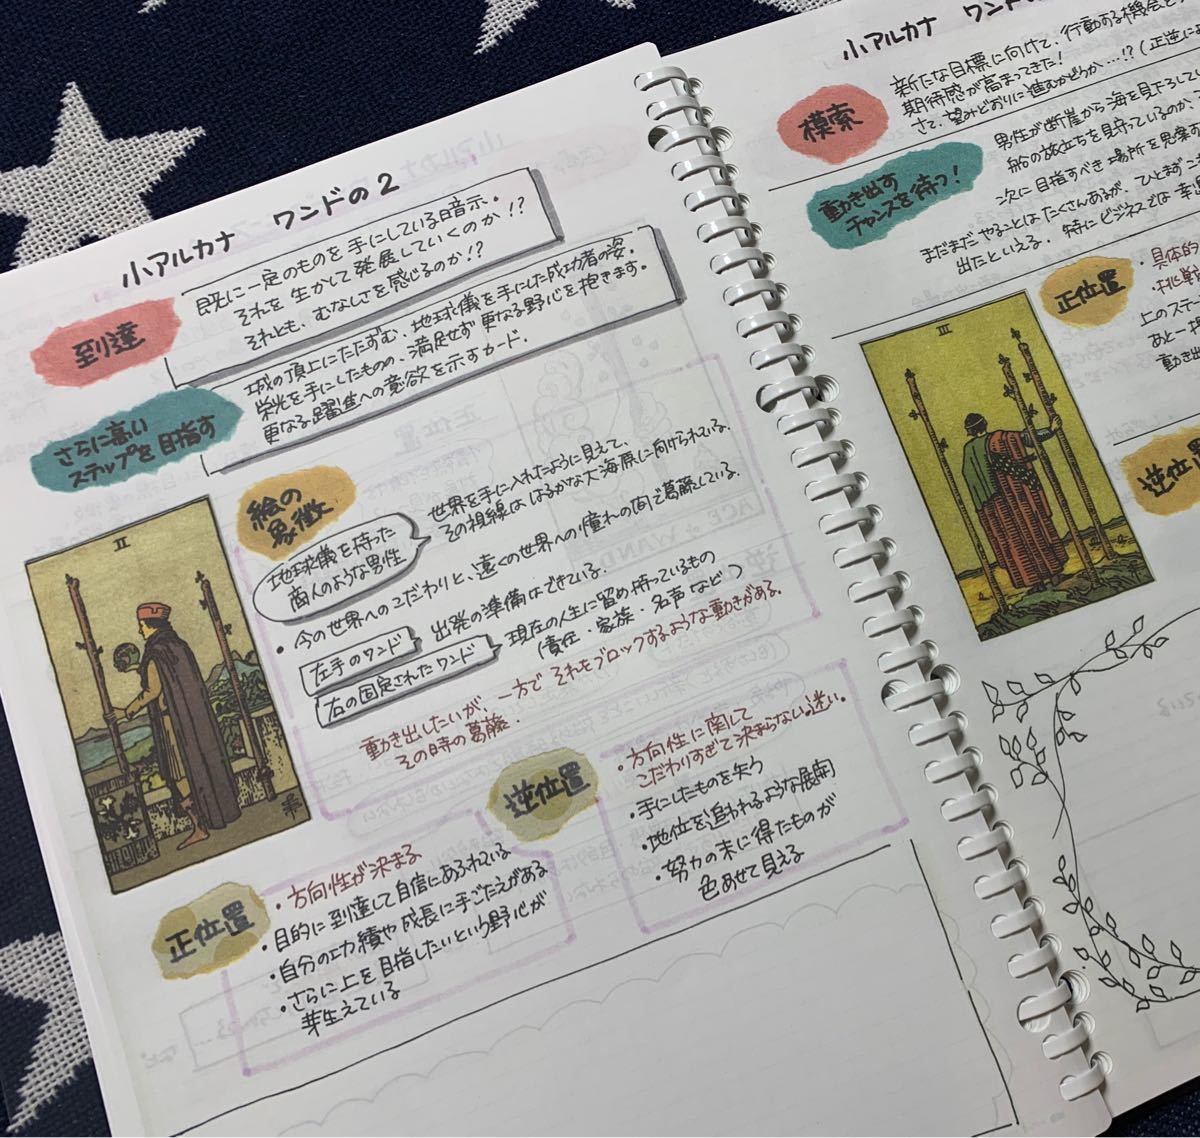 小アルカナ ワンドの2
到達
既に一定のものを手にしている暗示。
それを生かして発展していくのか!?
それとも、むなしさを感じるのか!?
さらに高い
ステップを目指す
城の頂上にたたずむ、地球儀を手にした成功者の姿。
栄光を手にしたものの、満足せず更なる野心を抱きます。
更なる躍進への意欲を示すカード。
絵の
象徴
地球儀を持った
商人のような男性
世界を手に入れたように見えて、
その視線は はるかな大海原に向けられている。
・今の世界へのこだわりと、遠くの世界への憧れの間で葛藤している。
左手のワンド
出発の準備はできている。
右の固定されたワンド
現在の人生に留め持っているもの
(責任・家族・名声など)
動き出したいが、一方で それをブロックするような動きがある。
その時の葛藤。
II
逆位置
・方向性に関して
こだわりすぎて決まらない。迷い。
・手にしたものを失う
・地位を追われるような展開
・努力の末に得たものが
色あせて見える
正位置
・方向性が決まる
・目的に到達して自信にあふれている
・自分の功績や成長に手ごたえがある
・さらに上を目指したいという野心が
芽生えている
小アルカナ ワンドの
模索
新たな目標に向けて、行動する機会と
期待感が高まってきた!
さて、望みどおりに進むかどうか…!?(正逆によ
動き出す
チャンスを待つ!
男性が断崖から海を見下ろしてい
船の旅立ちを見守っているのか、
次に目指すべき場所を思案
まだまだやることはたくさんあるが、ひとまず
出たといえる。特にビジネスでは
正位置
・具体的
・挑戦
上のステッ
あと一
動き出
III
逆位置